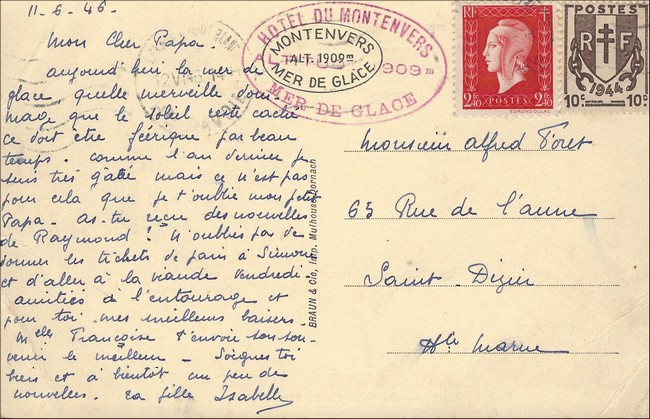 11-6-46-
Mon Cher Papa-
aujourd'hui la mer de
glace quelle merveille dom-
mage que le soleil reste caché
ce doit être féerique par beau
temps. comme l'an dernier je
suis très gâtée mais ce n'est pas
pour cela que je t'oublie mon petit
Papa- as-tu reçu des nouvelles
de Raymond? N'oublies pas de
donner les tickets de pain à Simone
et d'aller à la viande vendredi-
amitiés de l'entourage et
pour toi mes meilleurs baisers-
Melle Françoise t'envoie son sou-
venir le meilleur - Soignes toi
bien et à bientôt un peu de
nouvelles. ta fille Isabelle
HOTEL DU MONTENVERS
ALT. 1909m
MER DE GLACE
MONTENVERS
ALT. 1909m
MER DE GLACE
RF
2f40 POSTES 2f40
EDMOND DULAC
POSTES
RF
1944
10c 10c
BRAUN & Cie, Imp. Mulhouse-Dornach
Monsieur Alfred
65 Rue de
Saint-Dizier
Hte Marne